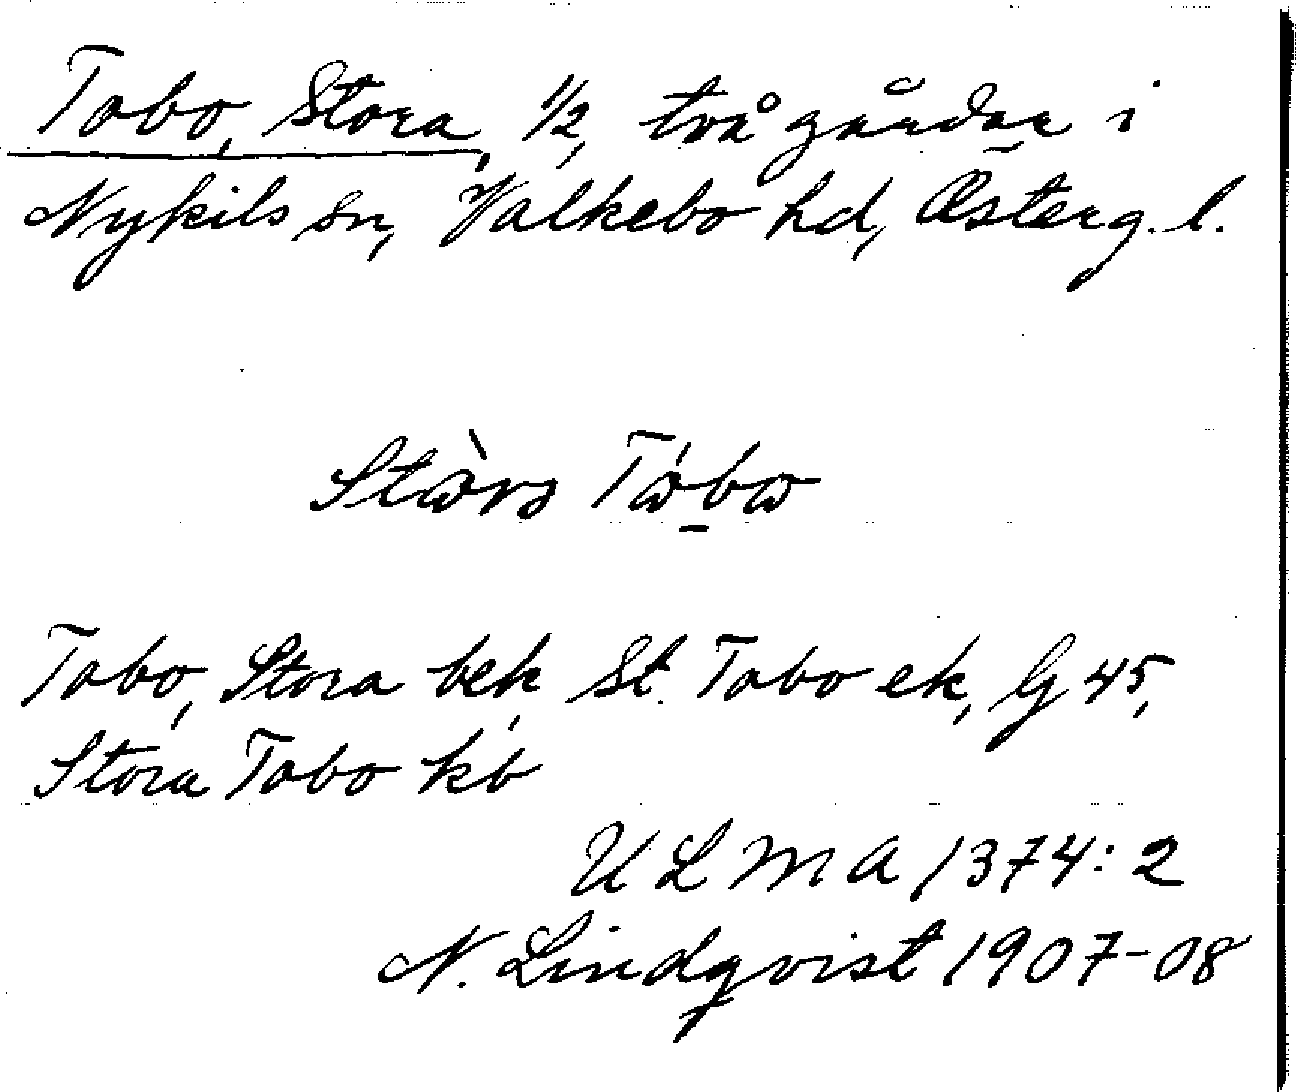 Tabo, Stora, 1/2, två gårdar i
Nykils sn, Valkebo hd, Österg. l.
Tabo, Stora bek, St. Tabo ek, G 45,
Stora Tabo kb
ULMA 1374:2
N. Lindqvist 1907-08